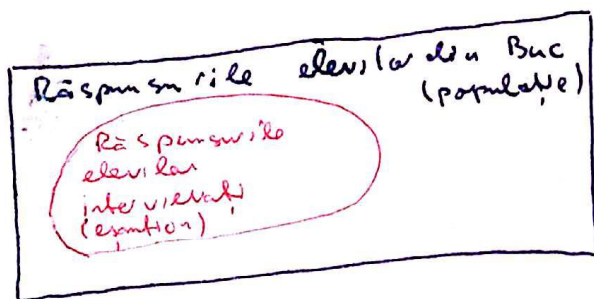 Răspunsurile elevilor din Buc
(populație)
Răspunsurile
elevilor
intervievați
(eșantion)